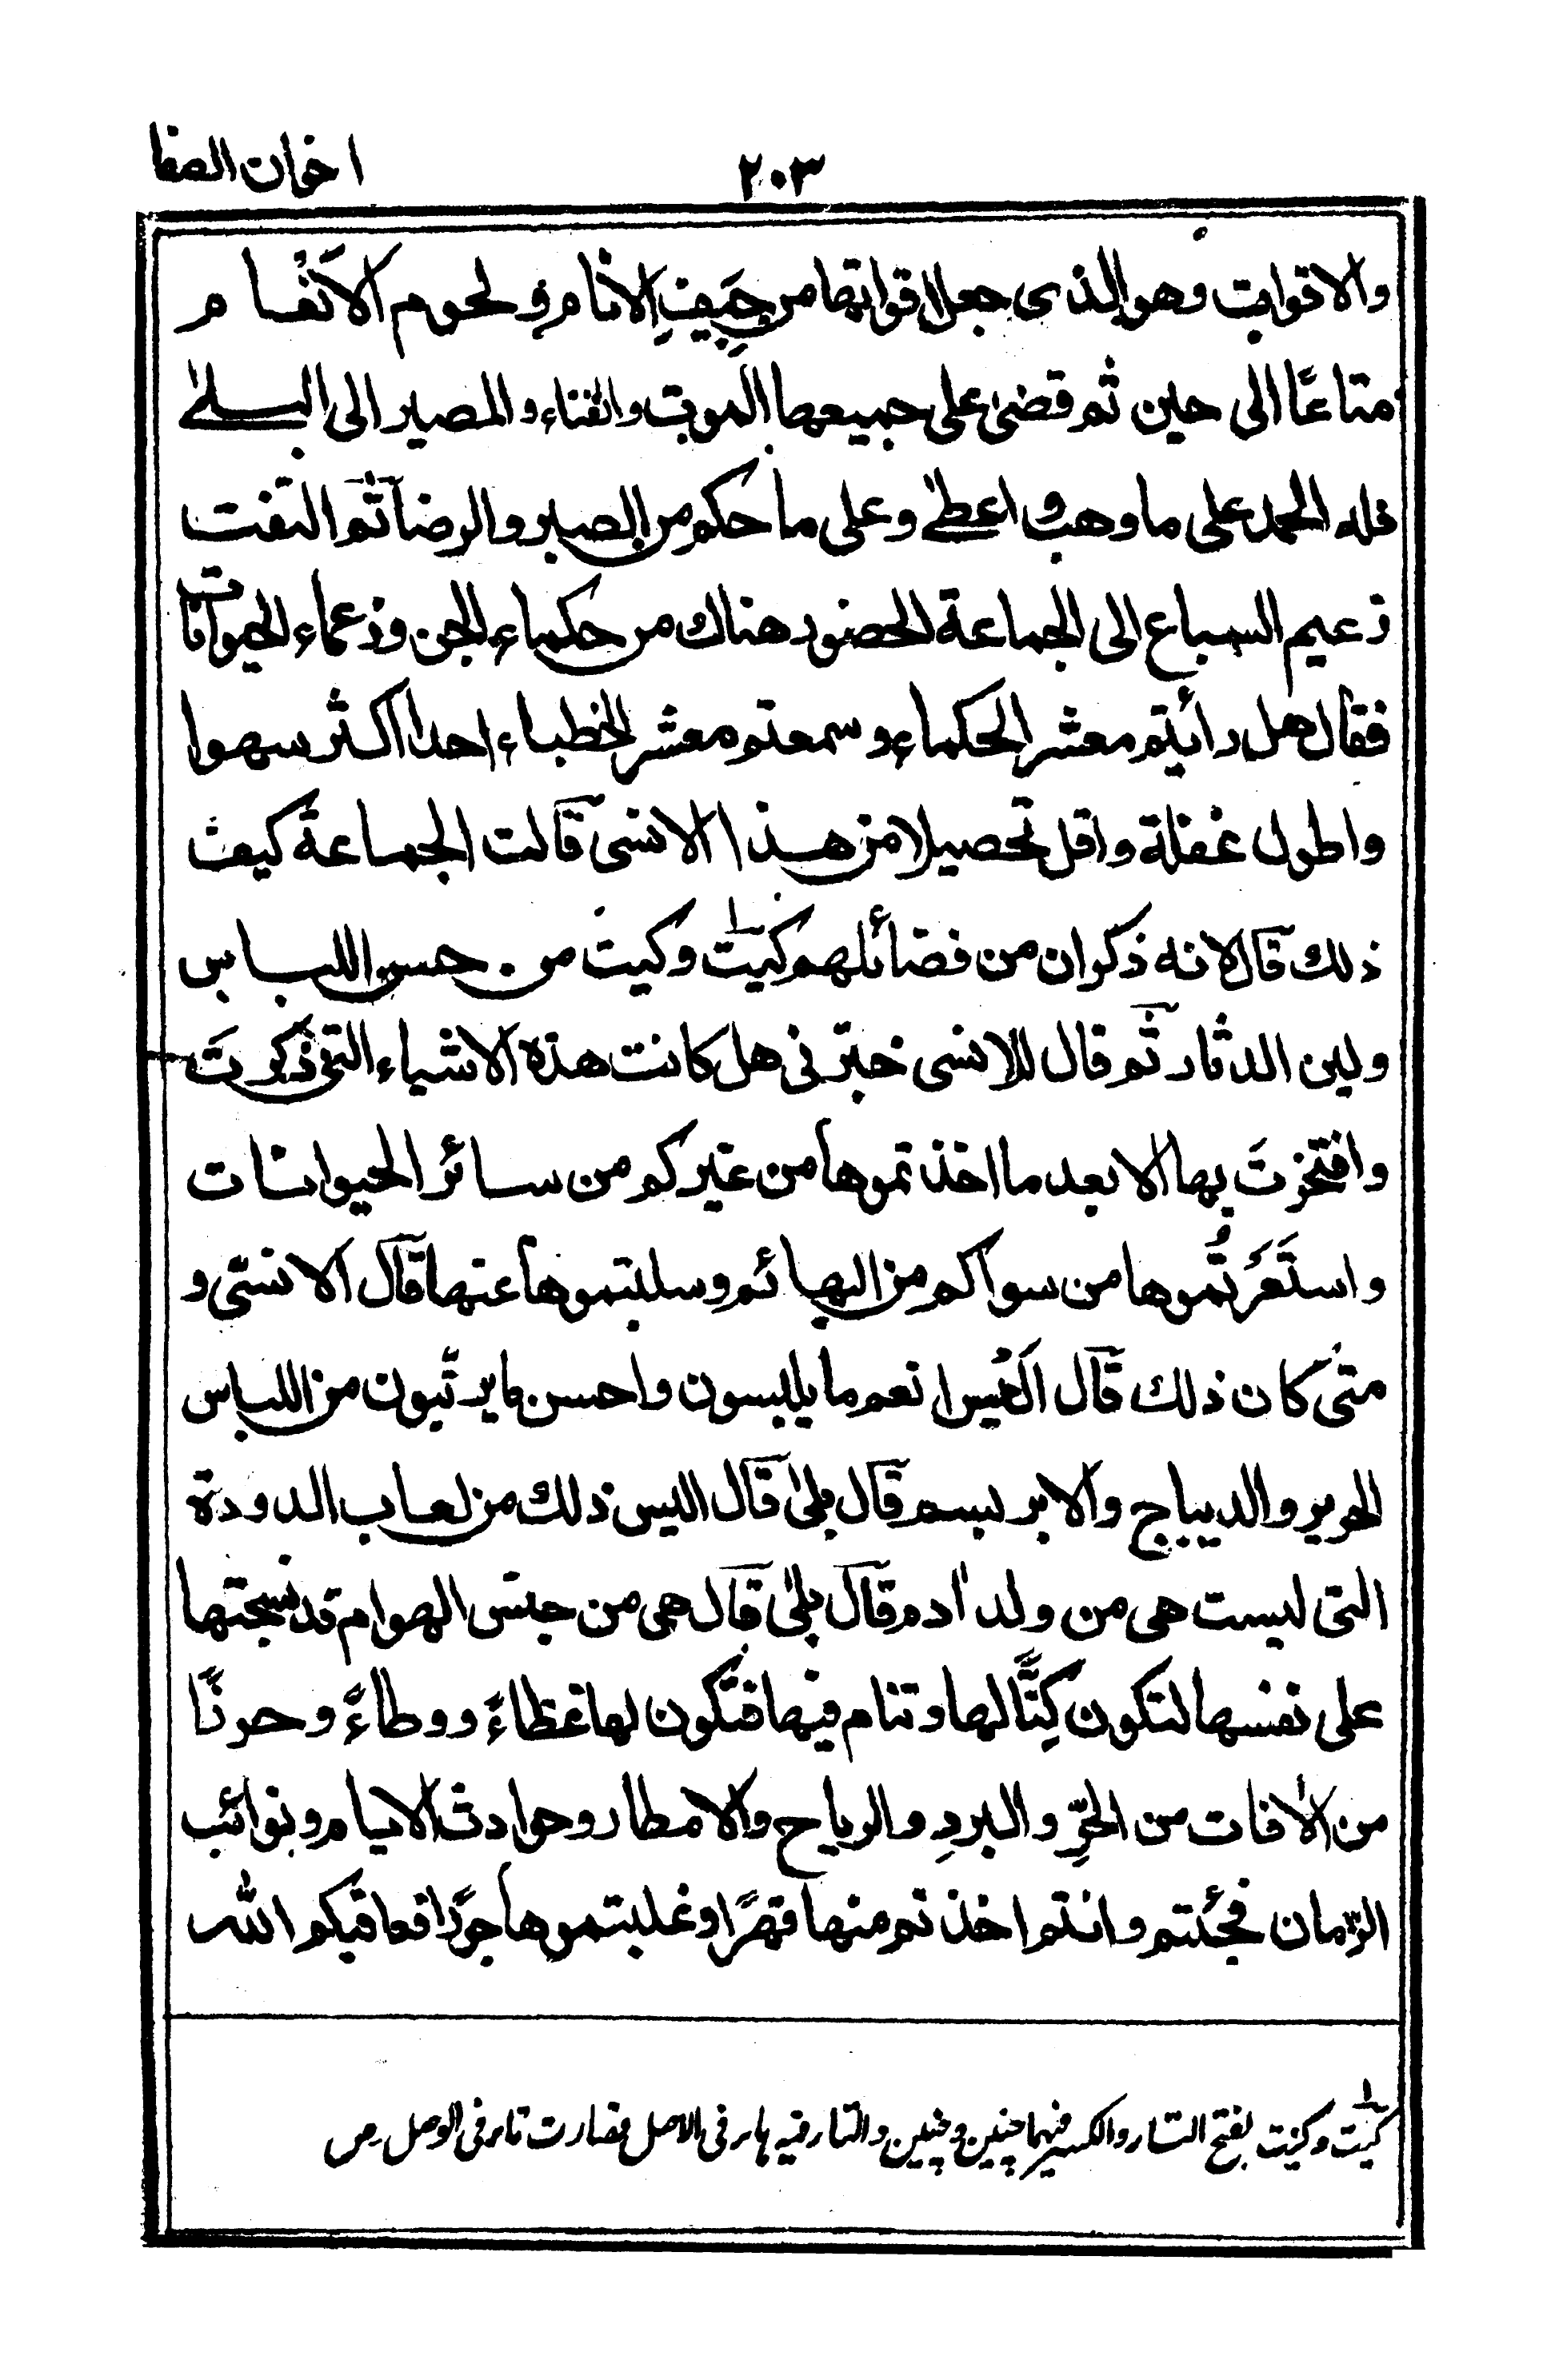 ٢٠٣
اخوان الصفا
والاقوات وهو الذى جعل اقواتها من جِيَفِ الانام و لحوم الاَنْعام
متاعًا الى حين ثم قضىٰ على جميعها الموت والفناء والمصير الى البلىٰ
فله الحمد على ما وهب و اعطىٰ وعلى ما حكم من الصبر والرضا ثم التفت
زعيم السباع الى الجماعة الحضور هناك من حكماء الجن وزعماء الحيوانات
فقال هل رأيتم معشر الحكماء و سمعتم معشر الخطباء احدا اكثر سهوا
واطول غفلة واقل تحصيلا من هذا الانسى قالت الجماعة كيف
ذلك قال لانه ذكر ان من فضائلهم كيتَ وكيت من حسن اللباس
ولين الدثار ثم قال للانسى خبّرنى هل كانت هذه الاشياء التى ذكرتَ
وافتخرتَ بها الا بعد ما اخذتموها من غيركم من سائر الحيوانات
واستَعَرتُموها من سواكم من البهائم وسلبتموها عنها قال الانسىّ و
متىٰ كان ذلك قال اَلَيْس انعم ما يلبسون واحسن ما يرتّبون من اللباس
الحرير والديباج والابريسم قال بلىٰ قال اليس ذلك من لعاب الدودة
التى ليست هى من ولد اٰدم قال بلىٰ قال هى من جنس الهوام قد نسجتها
على نفسها لتكون كِنًّا لها وتنام فيها فتكون لها غطاءً ووطاءً وحرزًا
من الاٰفات من الحرِّ والبردِ والرياح والامطار وحوادث الايام ونوائب
الزّمان فجئتم وانتم اخذتم منها قهرًا وغلبتموها جورًا فعاقبكم الله
كيت وكيت بفتح التاء والكسر فيهما چنين و چنين والتاء فيه هاء فى الاصل فصارت تاء فى الوصل ص